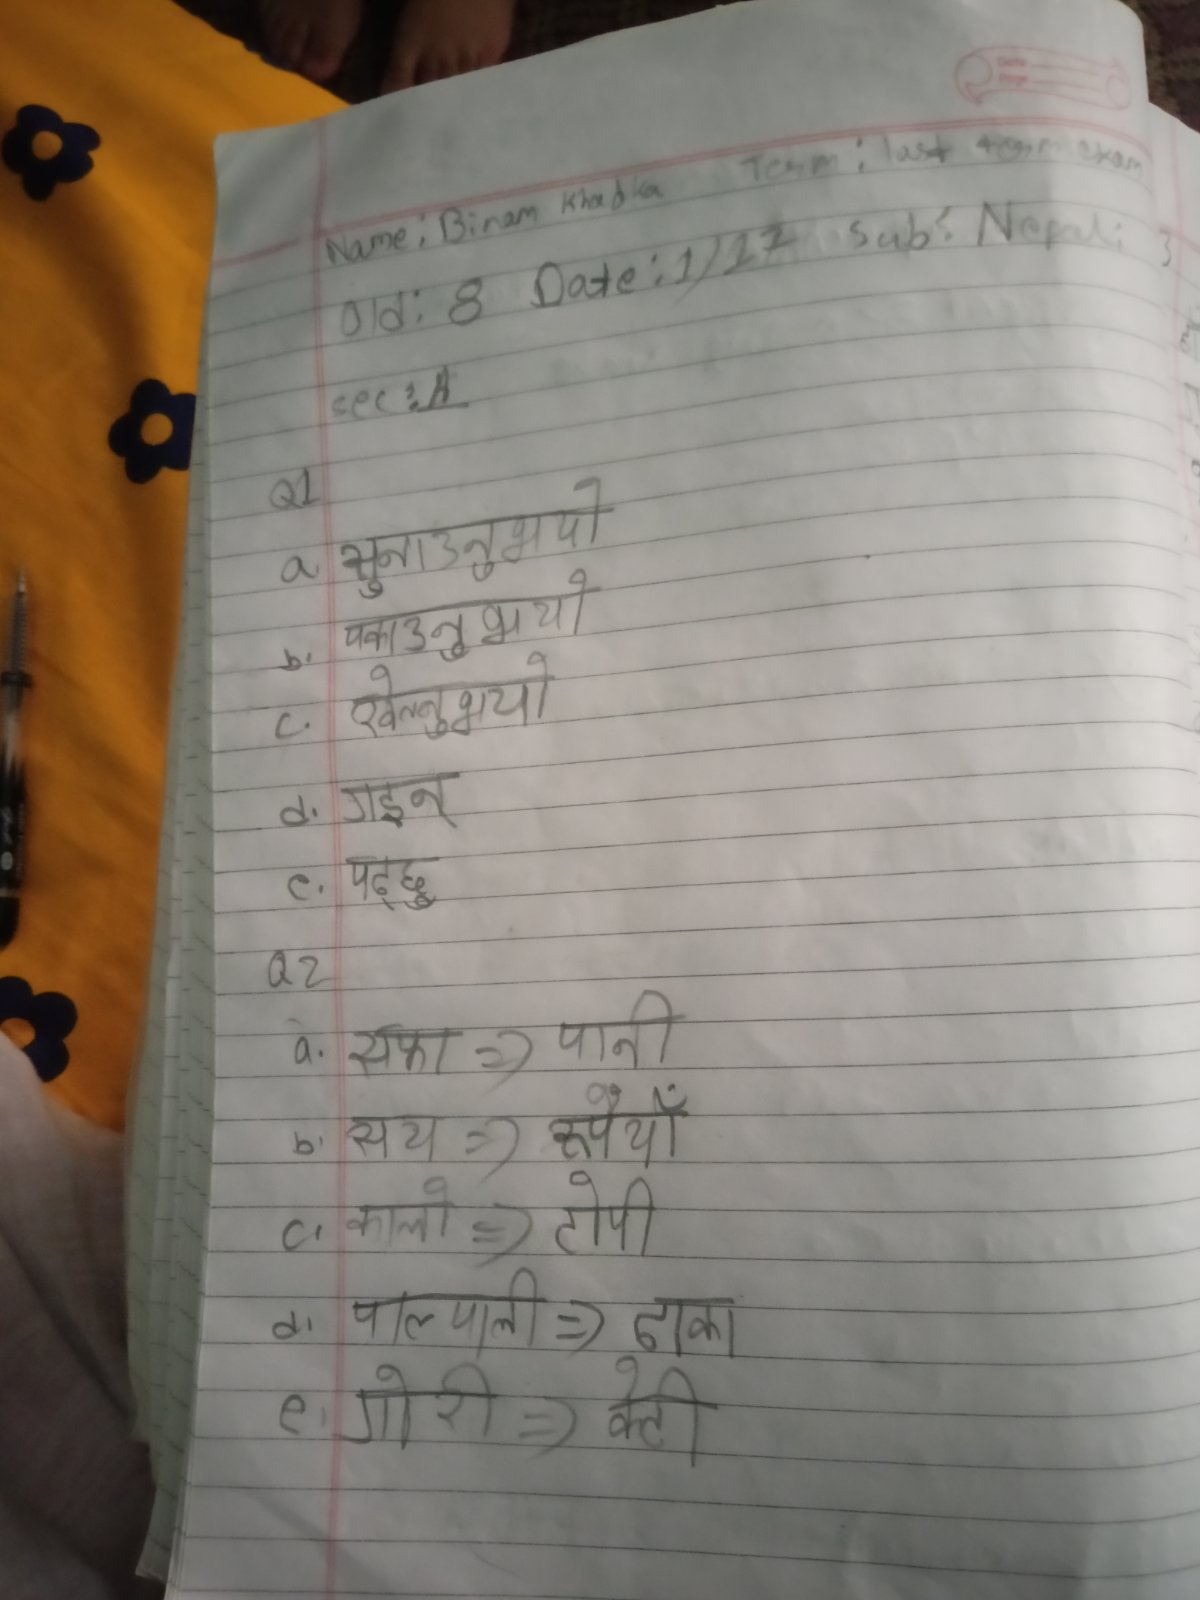 Date
Page
Name: Binam Khadka Term: last term exam
Old: 8 Date: 1/17 Sub: Nepali
sec: A
Q1
a. सुनाउनुभयो
b. पकाउनुभयो
c. खेल्नुभयो
d. गइन्
e. पढ्छु
Q2
a. सफा => पानी
b. सय => रुपैयाँ
c. कालो => टोपी
d. पाल्पाली => ढाका
e. गोरी => केटी